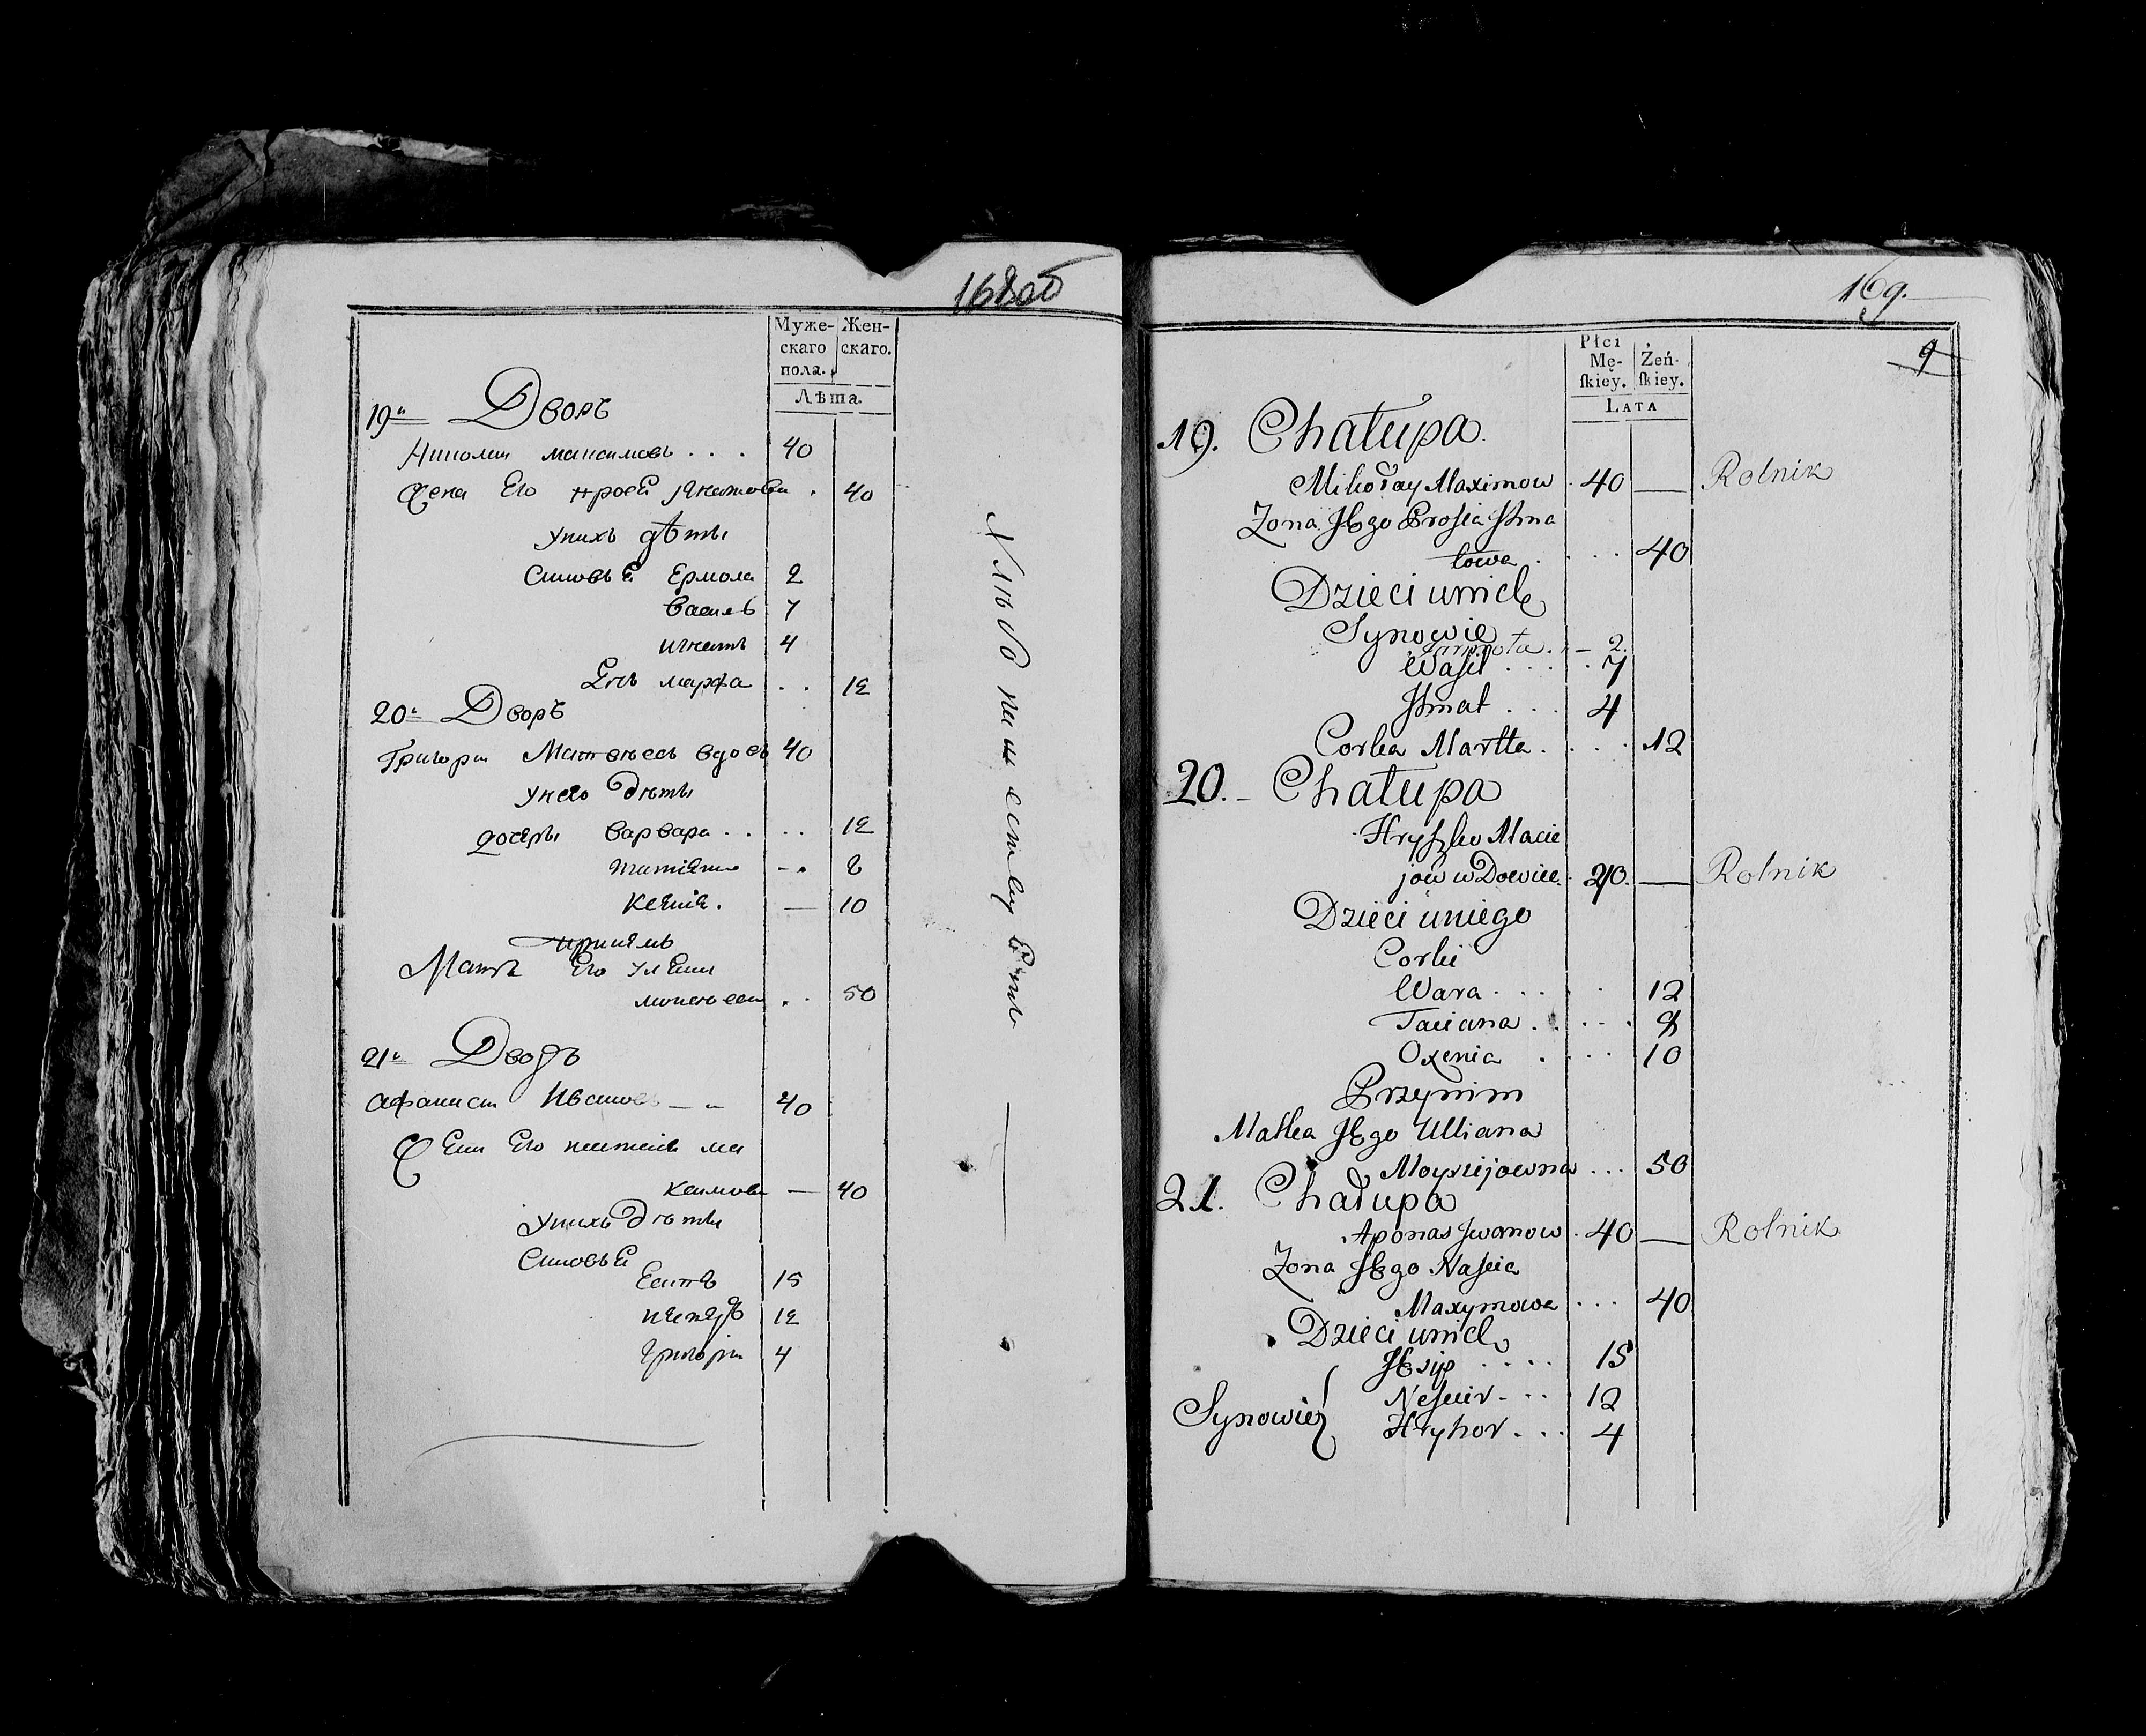 168об
Муже-
скаго
пола.
Жен-
скаго.
Лѣта.
19й Дворъ
Николай Максимовъ . . . 40
Жена Его Прося Игнатова . 40
У нихъ дѣти
Сыновья Ермола 2
Василь 7
Игнатъ 4
Дочь Марфа . . 12
20й Дворъ
Григори Матвѣевъ вдовъ 40
У него дѣти
дочери Варвара . . . . 12
Татіана - . 8
Ксеня . — 10
Мать Его Уляна
. . 50
21й Дворъ
Афанаси Ивановъ — - 40
Жена Его Настася Ма
ксимова — 40
У нихъ дѣти
Сыновья
Есипъ 15
12
Григори 4
169.
9
Płci
Mę-
ſkiey.
Żeń-
ſkiey.
Lata
19. Chałupa
Mikołay Maximow . 40 — Rolnik
Zona Jego Prosia Jhna
towa . . . . 40
Dzieci unich
Synowie
. – 2.
Wasil . . . . 7
Jhnat . . . 4
Corka Marta . . . . 12
20. – Chałupa
Hryszko Macie
jow wDowiec . 40. — Rolnik
Dzieci uniego
Corki
Wara . . . . . 12
Taciana . . . . . 8
Oxenia . . . . 10
Przynim
Matka Jego Ulliana
Moysiejowna . . . 50
21. Chałupa
Aponas Jwanow . 40 — Rolnik
Zona Jego Nascia
Maxymowa . . . 40
Dzieci unich
Josip . . . . 15
Synowie Nescier - . . 12
Hryhor . . . 4